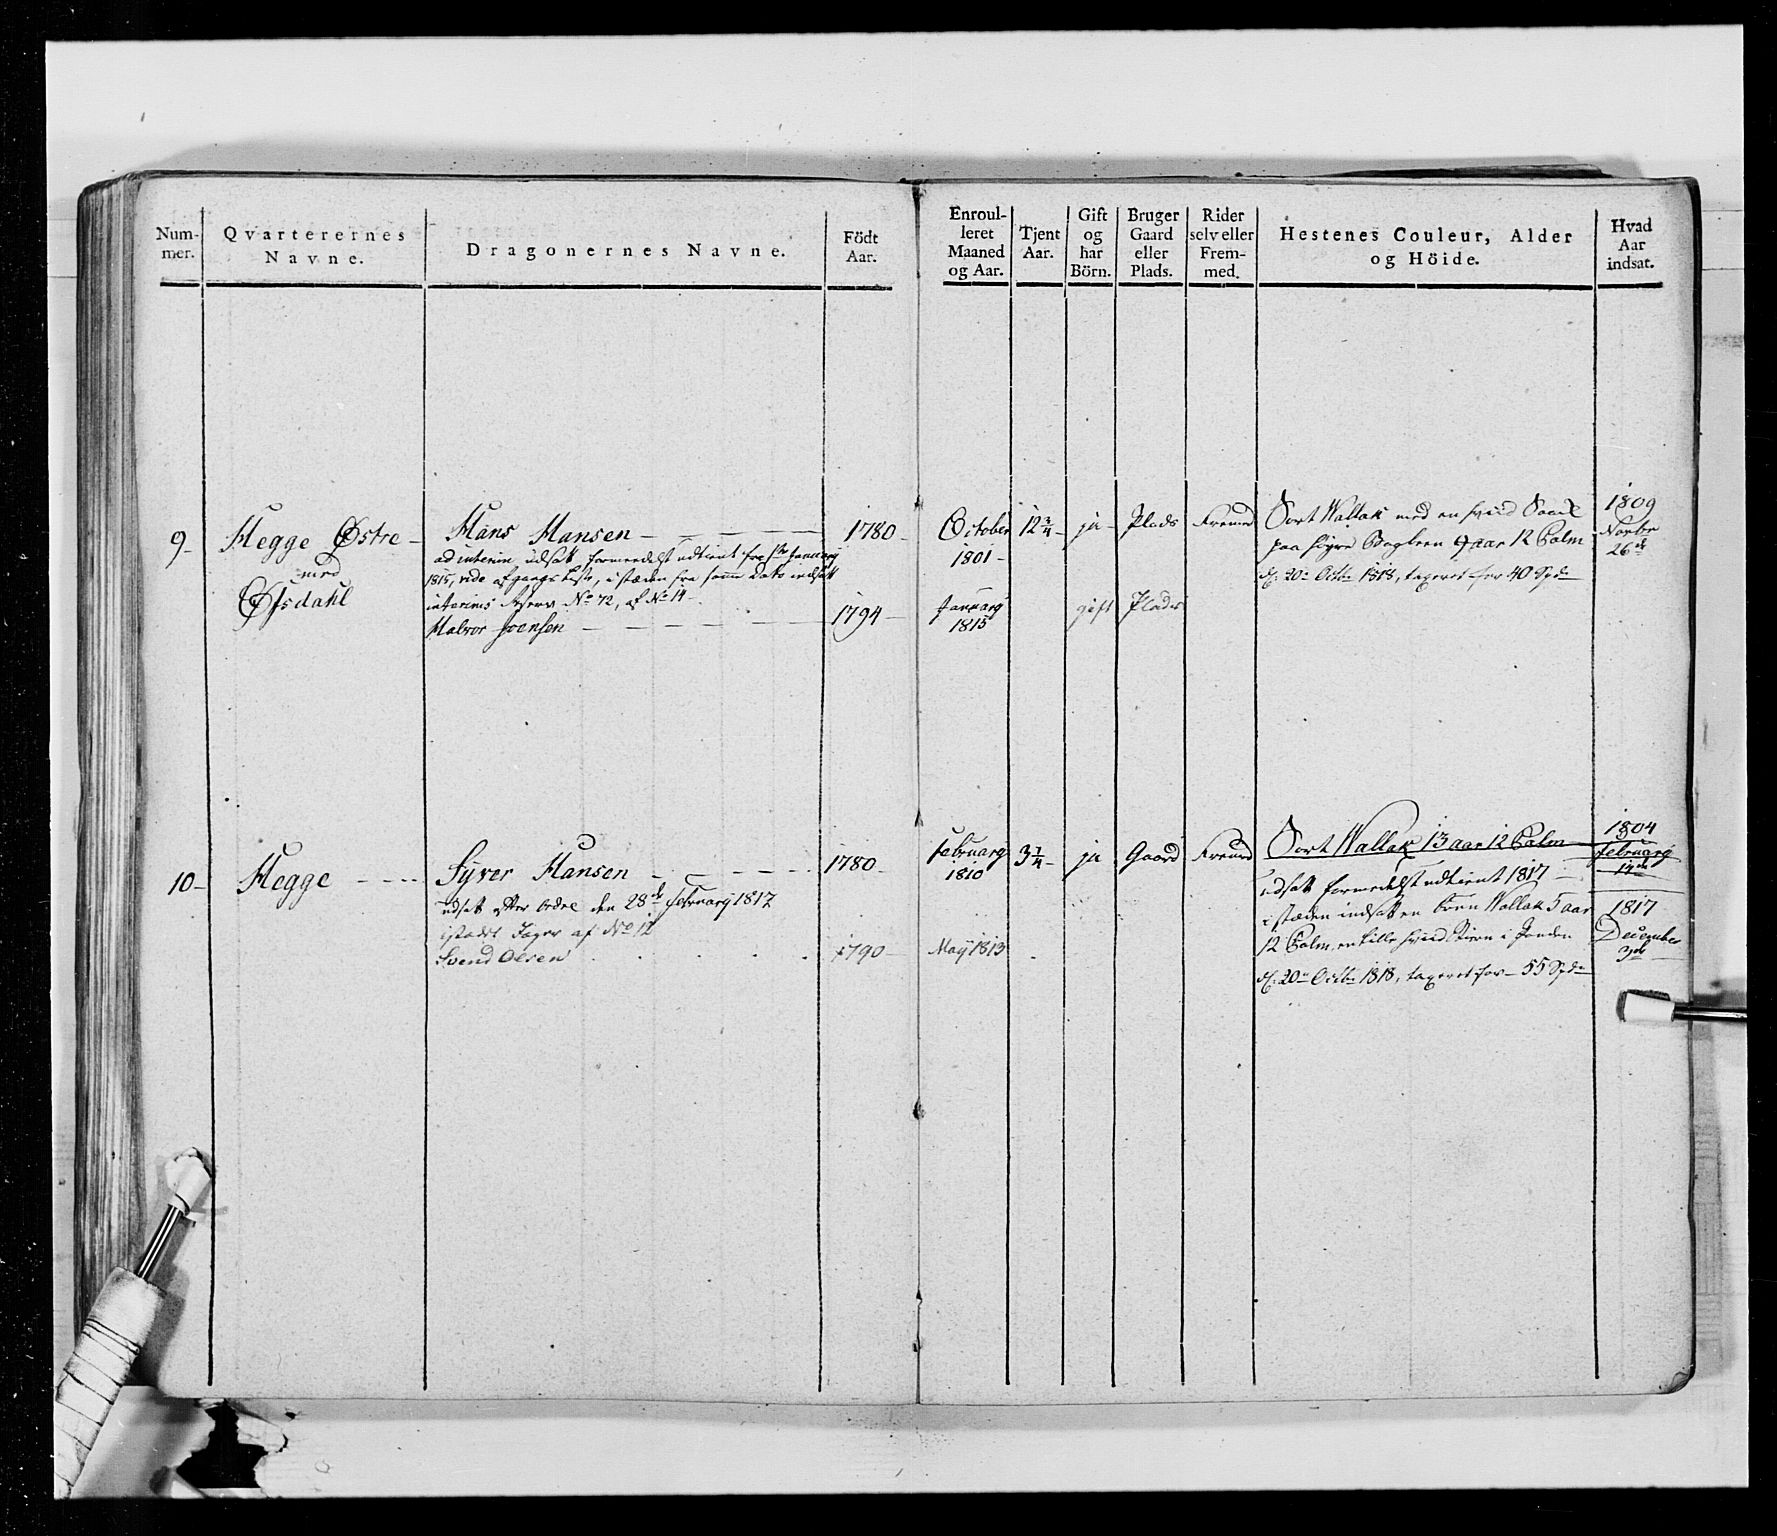 Num-
mer.
Qvarterernes
Navne.
Dragonernes Navne.
Födt
Aar.
Enroul-
leret
Maaned
og Aar.
Tjent
Aar.
Gift
og
har
Börn.
Bruger
Gaard
eller
Plads.
Rider
selv eller
Frem-
med.
Hestenes Couleur, Alder
og Höide.
Hvad
Aar
indsat.
9-
Hegge Østre -
med
Øfsdahl
Hans Hansen
ad interim udsatt formedelst udtient fra 1ste January
1815, vide afgangs Liste, i stæden fra samme Dato indsatt
interims Reserv No 72, af No 14
Halvor Svensen
1780-
1794-
October
1801-
January
1815
12 3/4 -
ja-
gift
Plads
Plads
Fremed
Sort Wallak med en hviid Sadel
paa höyre Bogbeen 9 aar 12 Palm
d: 20de Octbr 1818, taxeret for 40 Spd
1809
Novbr
26de
10-
Hegge
Syver Hansen
udsatt efter Ordre den 28de February 1817
istædet Jæger af No 12
Svend Olsen
1780-
1790-
February
1810
May 1813
3 3/4 -
ja
Gaard
Fremed
Sort Wallak 13 aar 12 Palm
udsatt formedelst udtient 1817
i stæden indsatt en brun Wallak 5 aar
12 Palm, en lille hviid Stiern i Panden
d: 20de Octbr 1818, taxeret for - 55 Spd
1804
February
1817
December
3de